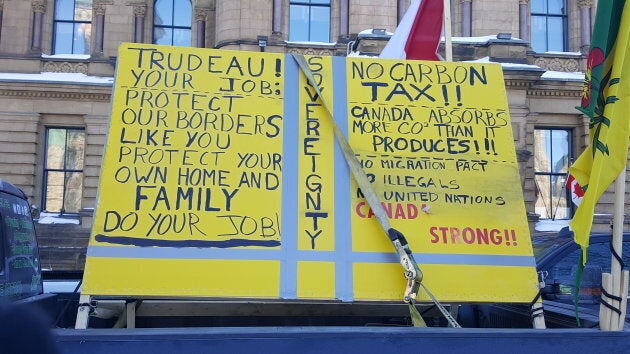 TRUDEAU!
YOUR JOB:
PROTECT
OUR BORDERS
LIKE YOU
PROTECT YOUR
OWN HOME AND
FAMILY
DO YOUR JOB!
SOVEREIGNTY
NO CARBON
TAX!!
CANADA ABSORBS
MORE CO² THAN IT
PRODUCES!!!
NO MIGRATION PACT
ILLEGALS
UNITED NATIONS
STRONG!!